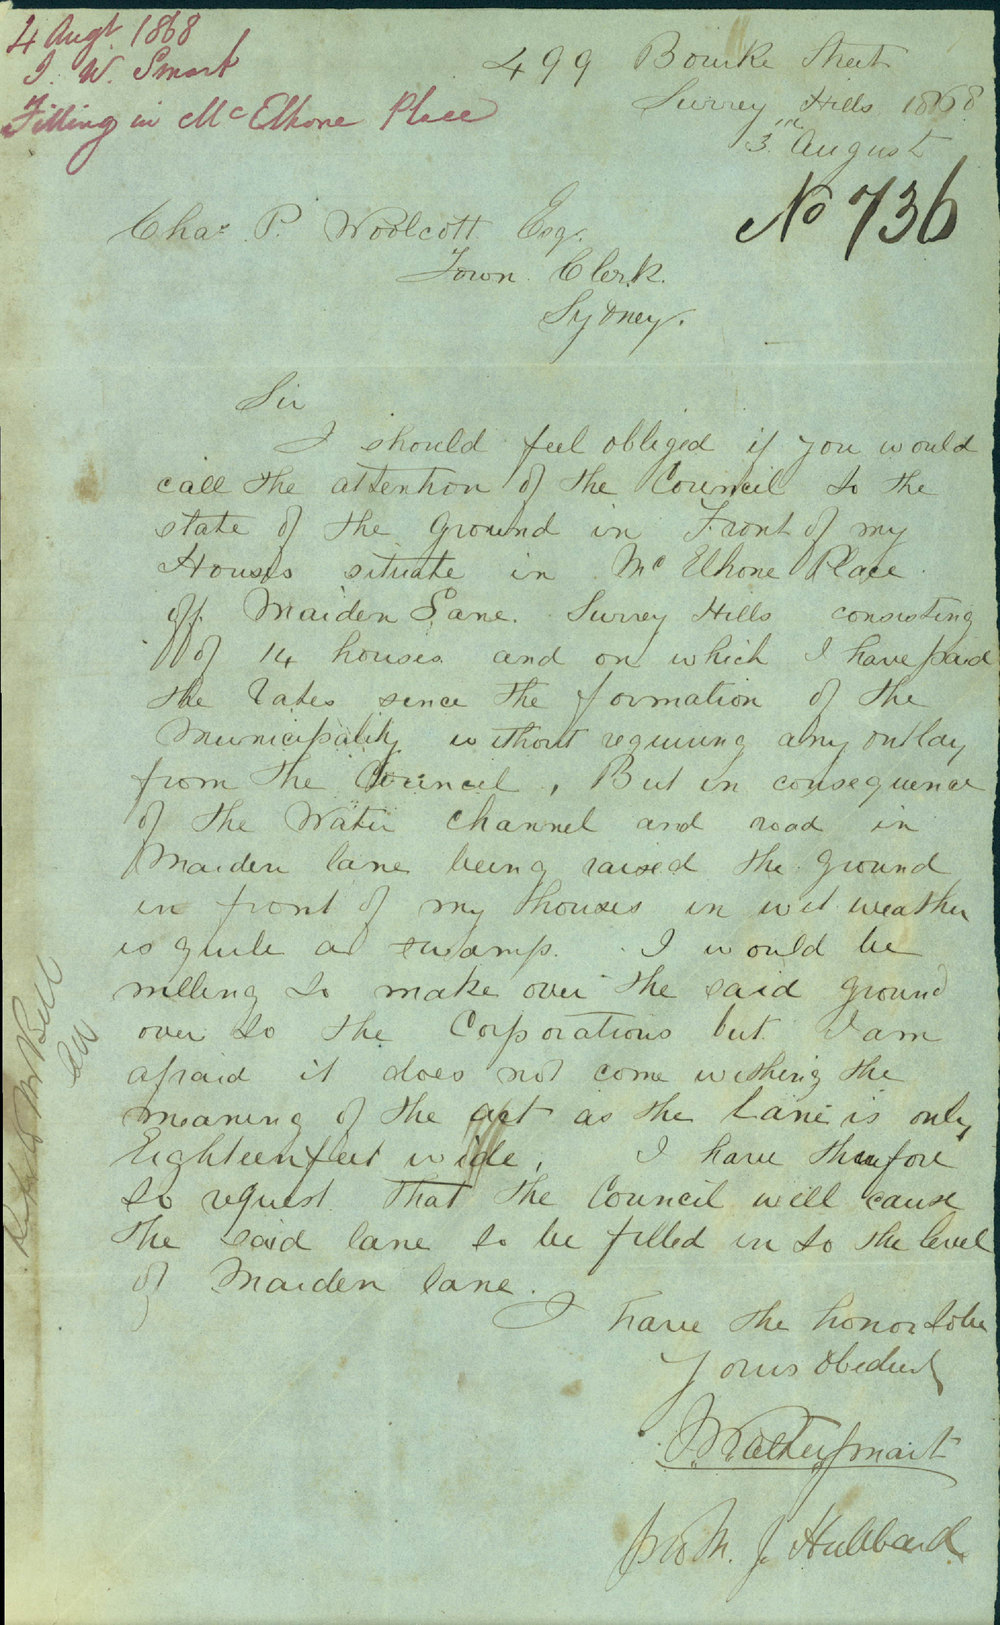 4 Augt 1868
I. W. Smart
Filling in McElhone Place
499 Bourke Street
Surrey Hills 1868
3rd August
No 736
Chas. P. Woolcott Esq.
Town Clerk.
Sydney.
Sir
I should feel obliged if you would
call the attention of the Council to the
state of the ground in Front of my
Houses situate in Mc Elhone Place.
off Maiden Lane. Surrey Hills consisting
of 14 houses and on which I have paid
the Rates since the formation of the
Municipality without requiring any outlay
from the Council, But in consequence
of the Water Channel and road in
Maiden lane being raised the ground
in front of my houses in wet weather
is quite a swamp. I would be
willing to make over the said ground
over to the Corporations but I am
afraid it does not come withing the
meaning of the act as the Lane is only
Eighteen feet wide, I have therefore
to request that the Council will cause
the said lane to be filled in to the level
of Maiden lane.
I have the honor to be
Yours Obedient
Smart
M. J. Hubbard
Mr Bell